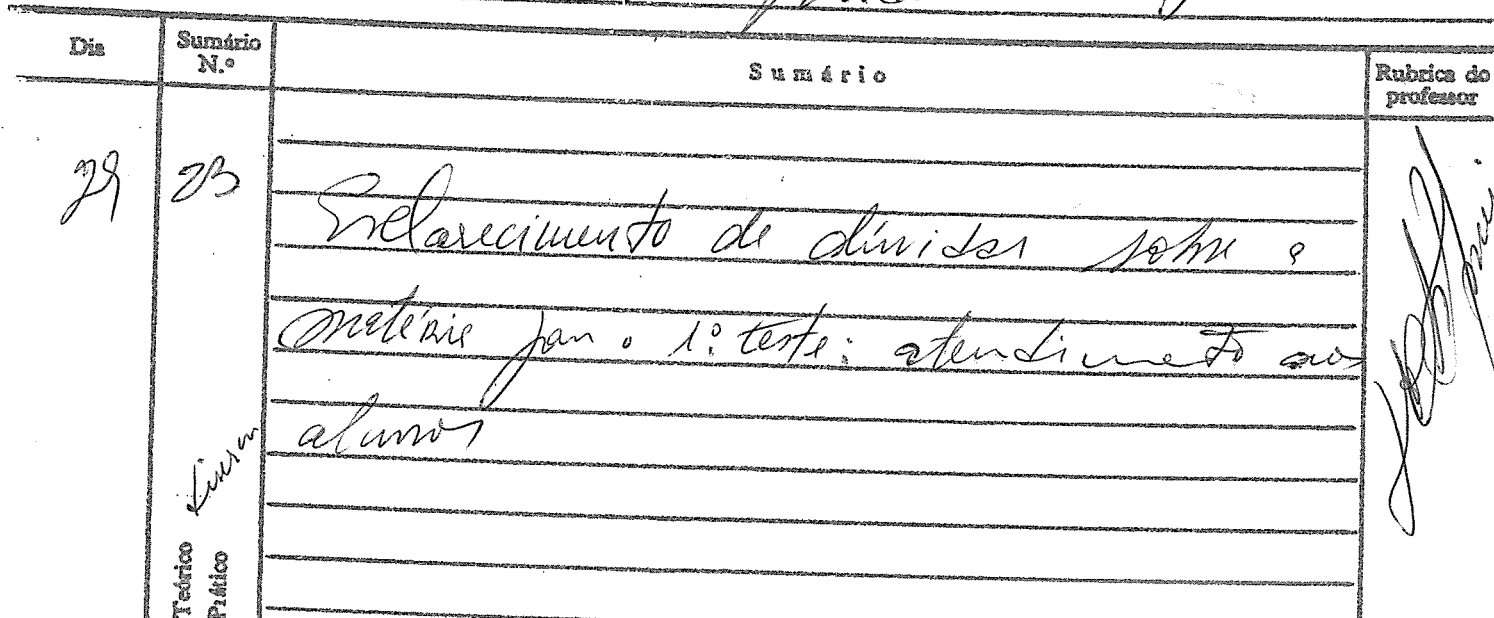 Dia
Sumário N.º
Sumário
Rubrica do professor
29
23
Esclarecimento de dúvidas sobre a
matéria para o 1º teste: atendimento aos
alunos
Teórico
Prático